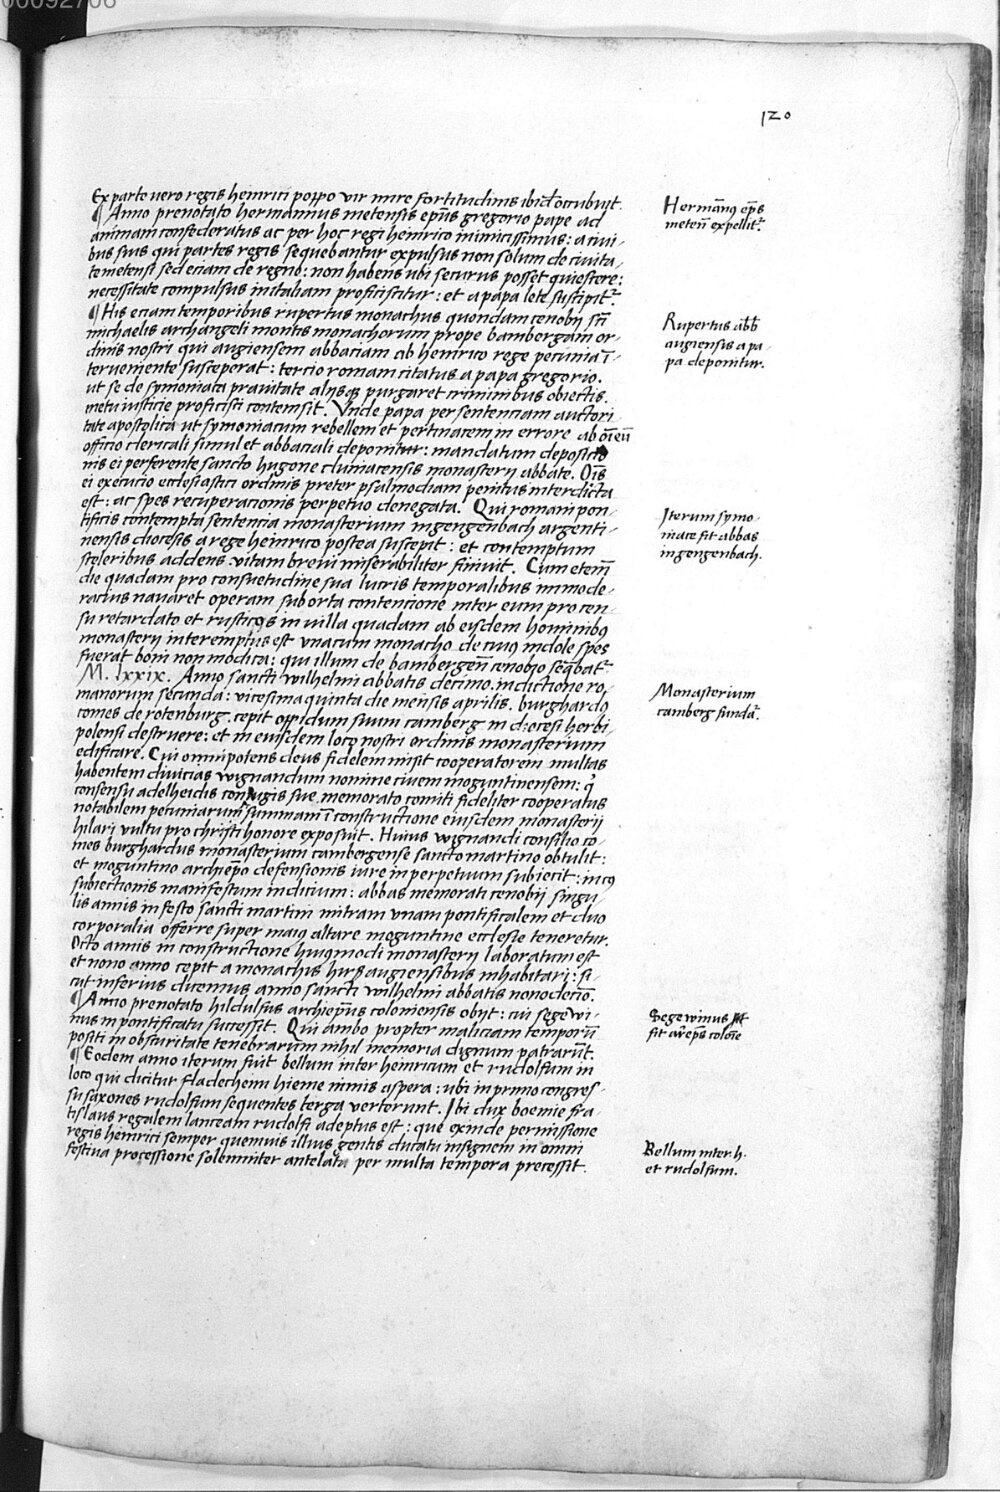 00092706
120
Ex parte vero regis heinrici poppo vir mire fortitudinis ibid occubuit.
¶ Anno prenotato hermannus metensis epūs gregorio pape ad
animam confederatus ac per hoc regi heinrico inimicissimus: a civi-
bus suis qui partes regis sequebantur expulsus non solum de civita-
te metensi sed eciam de regno: non habens ubi securus posset quiescere:
necessitate compulsus in italiam proficiscitur: et a papa lete suscipit².
Hermāng ep̄s
meteñ expellit².
¶ His eciam temporibus rupertus monachus quondam cenobij scti
michaelis archangeli montis monachorum prope bambergam or-
dinis nostri qui augiensem abbaciam ab heinrico rege pecunia ī-
terveniente susceperat: tercio romam citatus a papa gregorio.
ut se de symoniaca pravitate alijsqꝫ purgaret criminibus obiectis.
metu iusticie proficisci contemsit. Unde papa per sentenciam auctori
tate apostolica ut symoniacum rebellem et pertinacem in errore ab oīeū
officio clericali simul et abbaciali deponitur: mandatum deposicio
nis ei perferente sancto hugone cluniacensis monasterij abbate. Oīs
ei execucio ecclesiastici ordinis preter psalmodiam penitus interdicta
est: ac spes recuperacionis perpetuo denegata. Qui romani pon-
tificis contempta sentencia monasterium in gengenbach argenti-
nensis diocesis a rege heinrico postea suscepit: et contemptum
sceleribus addens vitam brevi miserabiliter finivit. Cum eteñ
die quadam pro consuetudine sua lucris temporalibus immode-
racius navaret operam suborta contencione inter eum pro cen-
su retardato et rusticos in villa quadam ab eisdem hominibꝯ
monasterij interemptus est unacum monacho de cuiꝯ indole spes
fuerat boni non modica: qui illum de bambergeñ cenobio seqͣbat².
Rupertus ab̄b
augiensis a pa-
pa deponitur.
Iterum symo-
niace fit abbas
in gengenbach.
M. lxxix. Anno sancti wilhelmi abbatis decimo. indictione ro-
manorum secunda: vicesima quinta die mensis aprilis. burghardꝯ
comes de rotenburg. cepit oppidum suum camberg in diocesi herbi
polensi destruere: et in eiusdem loco nostri ordinis monasterium
edificare. Cui omnipotens deus fidelem misit cooperatorem multas
habentem divicias wignandum nomine civem moguntinensem: q̄
consensu adelheidis coniugis sue memorato comiti fideliter cooperatus
notabilem pecuniarum summam ī constructione eiusdem monasterij
hilari vultu pro christi honore exposuit. Huius wignandi consilio co-
mes burghardus monasterium cambergense sancto martino obtulit:
et moguntino archiep̄o defensionis iure in perpetuum subiecit: in cꝯ
subiectionis manifestum indicium: abbas memorati cenobij singu-
lis annis in festo sancti martini mitram unam pontificalem et duo
corporalia offerre super maiꝯ altare moguntine ecclesie teneretur.
Octo annis in constructione huiꝯmodi monasterij laboratum est
et nono anno cepit a monachis hirsaugiensibus inhabitari: si-
cut inferius dicemus anno sancti wilhelmi abbatis nonodecīo.
Monasterium
camberg fundat².
¶ Anno prenotato hildulfus archiep̄us coloniensis obijt: cui segewi-
nus in pontificatu successit. Qui ambo propter maliciam temporū
positi in obscuritate tenebrarum nihil memoria dignum patrarūt.
Segewinus
fit ar̄ep̄s colōīe
¶ Eodem anno iterum fuit bellum inter heinricum et rudolfum in
loco qui dicitur fladecheim hieme nimis aspera: ubi in primo congres-
su saxones rudolfum sequentes terga verterunt. Ibi dux boemie fra-
tislaus regalem lanceam rudolfi adeptus est: que exinde permissione
regis heinrici semper quemvis illius gentis ducatu insignem in omni
festiva processione solenniter antelata per multa tempora precessit.
Bellum inter h.
et rudolfum.